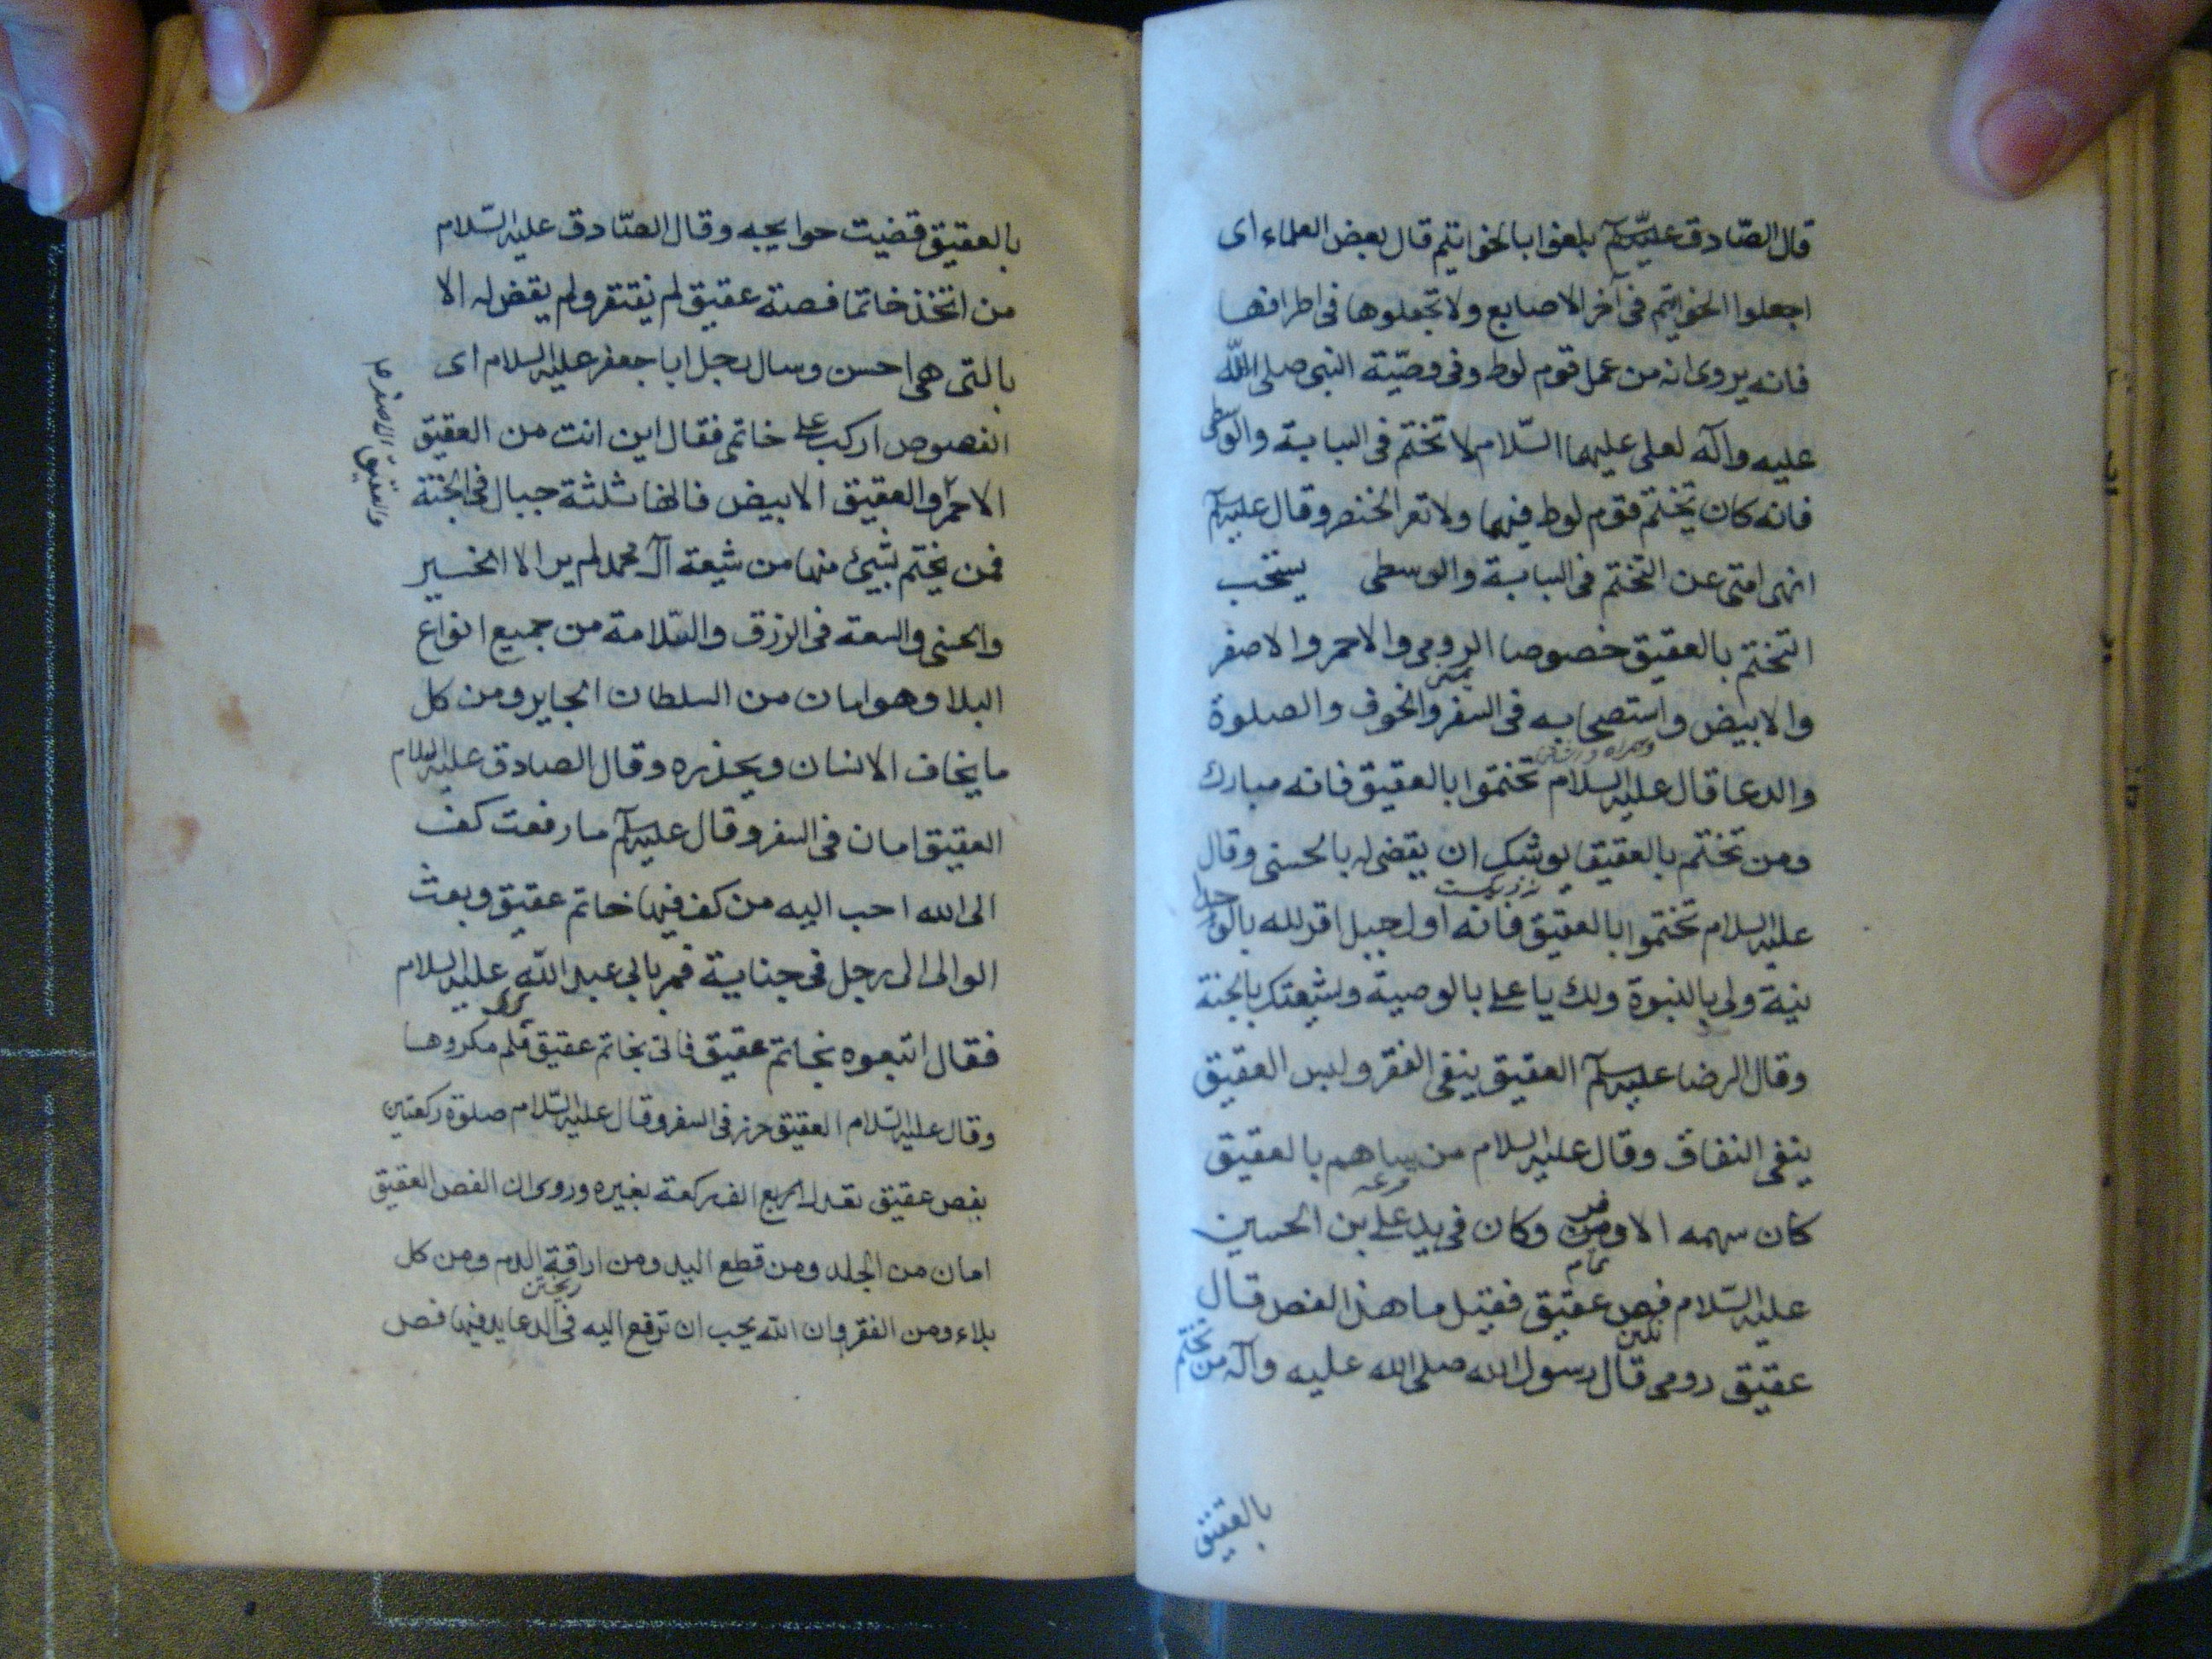 قال الصّادق عليه السلم بلغوا بالخواتيم قال بعض العلماء اى
اجعلوا الخواتيم فى آخر الاصابع ولا تجعلوها فى اطرافها
فانه يروى انه من عمل قوم لوط وفى وصيّة النبى صلى الله
عليه وآله لعلى عليهما السّلام لا تختم فى السبابة والوسطى
فانه كان يتختم قوم لوط فيهما ولا تعر الخنصر وقال عليه السلم
انهى امتى عن التختم فى السبابة والوسطى يستحب
التختم بالعقيق خصوصا الرومى والاحمر والاصفر
والابيض واستصحابه فى السفر والخوف والصلوة
والدعا قال عليه السلام تختموا بالعقيق فانه مبارك
ومن تختم بالعقيق يوشك ان يقضى له بالحسنى وقال
نزديكست
عليه السلام تختموا بالعقيق فانه اول جبل اقر لله بالوحدا
نية ولى بالنبوة ولك يا على بالوصية ولشيعتك بالجنة
وقال الرضا عليه السلم العقيق ينفى الفقر ولبس العقيق
ينفى النفاق وقال عليه السلام من ساهم بالعقيق
قرعه
كان سهمه الاوفر وكان فى يد على بن الحسين
تمام
عليه السّلام فص عقيق فقيل ما هذا الفص قال
نكين
عقيق رومى قال رسول الله صلى الله عليه وآله من تختم
بالعقيق
بالعقيق قضيت حوايجه وقال الصّادق عليه السّلام
من اتخذ خاتما فصه عقيق لم يفتقر ولم يقض له الا
بالتى هى احسن وسال رجل ابا جعفر عليه السلام اى
الفصوص اركب على خاتمى فقال اين انت من العقيق
الاحمر والعقيق الابيض فانها ثلثة جبال فى الجنة
والعقيق الاصفر
فمن تختم بشىء منها من شيعة آل محمد لم ير الا الخير
والحسنى والسعة فى الرزق والسّلامة من جميع انواع
البلا وهو امان من السلطان الجاير ومن كل
ما يخاف الانسان ويحذره وقال الصادق عليه السلام
العقيق امان فى السفر وقال عليه السلم ما رفعت كف
الى الله احب اليه من كف فيها خاتم عقيق وبعث
الوالى الى رجل فى جناية فمر بابى عبد الله عليه السلام
فقال اتبعوه بخاتم عقيق فاتى بخاتم عقيق فلم ير مكروها
وقال عليه السّلام العقيق حرز فى السفر وقال عليه السّلام صلوة ركعتين
بفص عقيق تعدل اربع الف ركعة بغيره وروى ان الفص العقيق
امان من الجلد ومن قطع اليد ومن اراقة الدم ومن كل
ريختن
بلاء ومن الفقر وان الله يحب ان ترفع اليه فى الدعا يد فيها فص